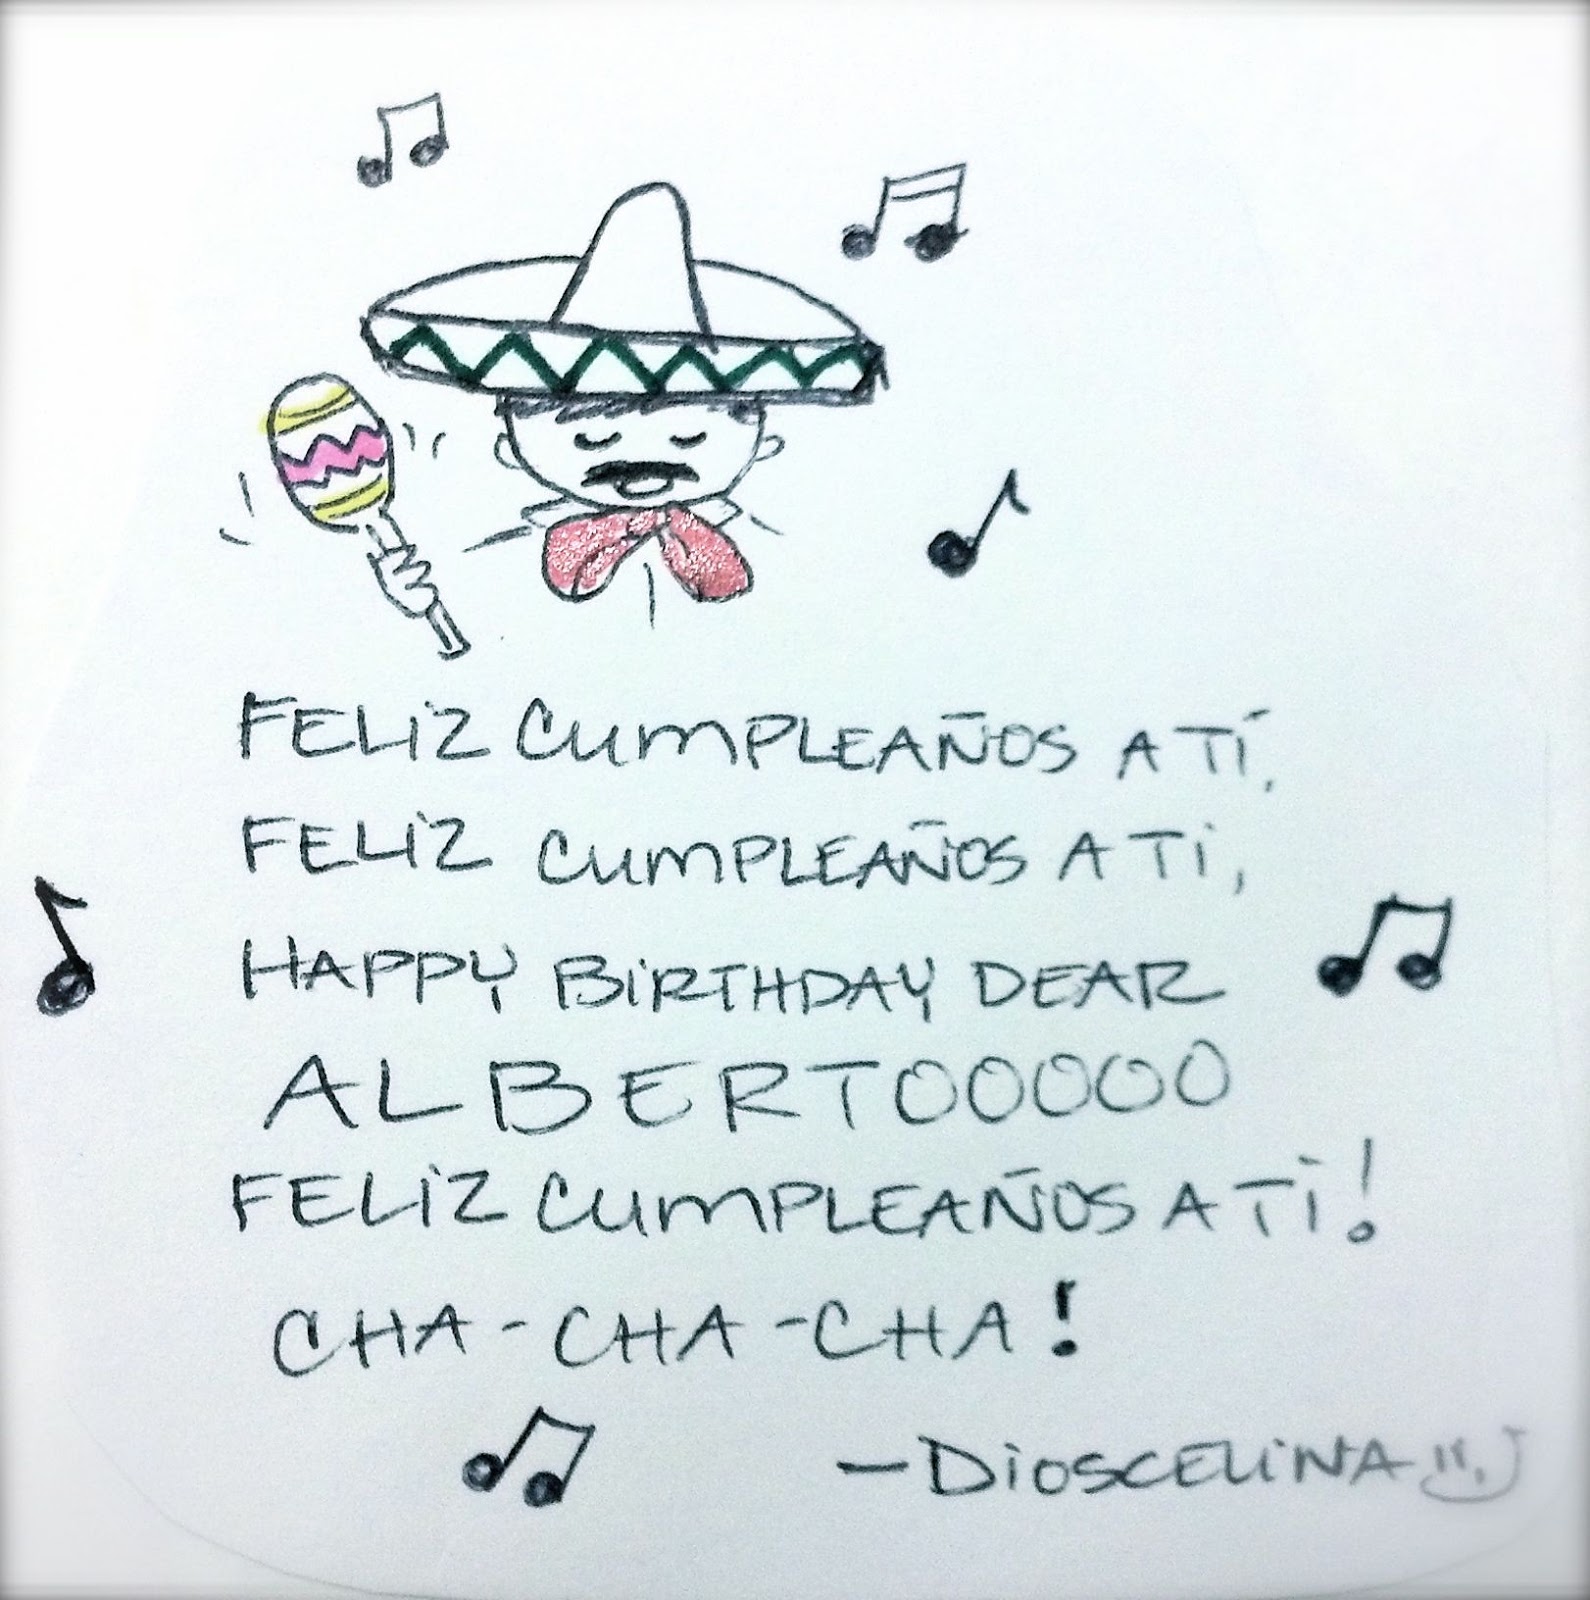 FELIZ CUMPLEAÑOS A TÍ,
FELIZ CUMPLEAÑOS A TI,
HAPPY BIRTHDAY DEAR
ALBERTOOOOO
FELIZ CUMPLEAÑOS A TI!
CHA-CHA-CHA!
-DIOSCELINA